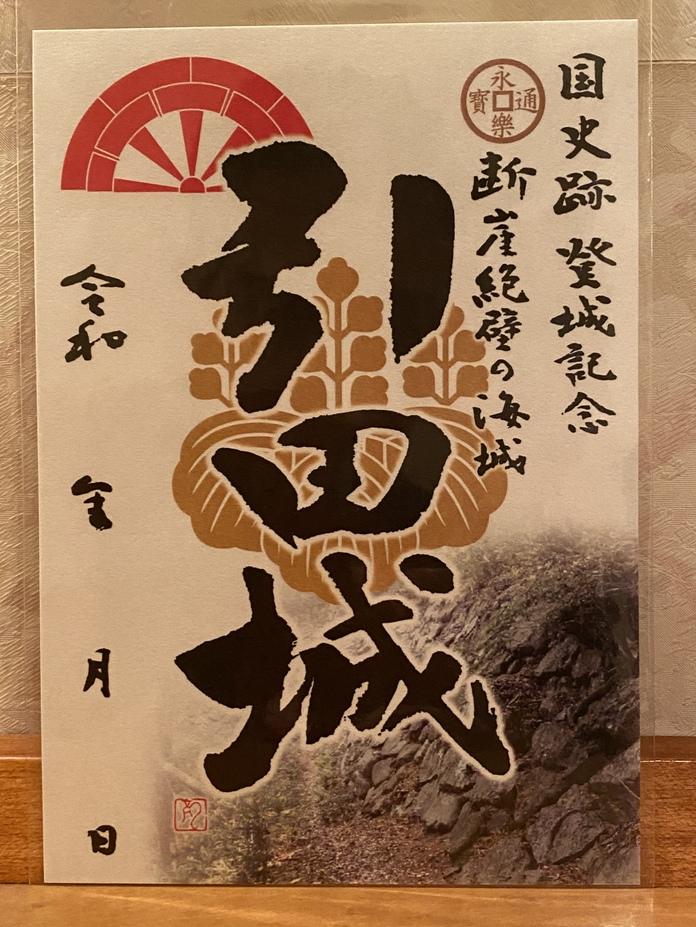 国史跡 登城記念
永樂通寶
断崖絶壁の海城
引田城
令和 年 月 日